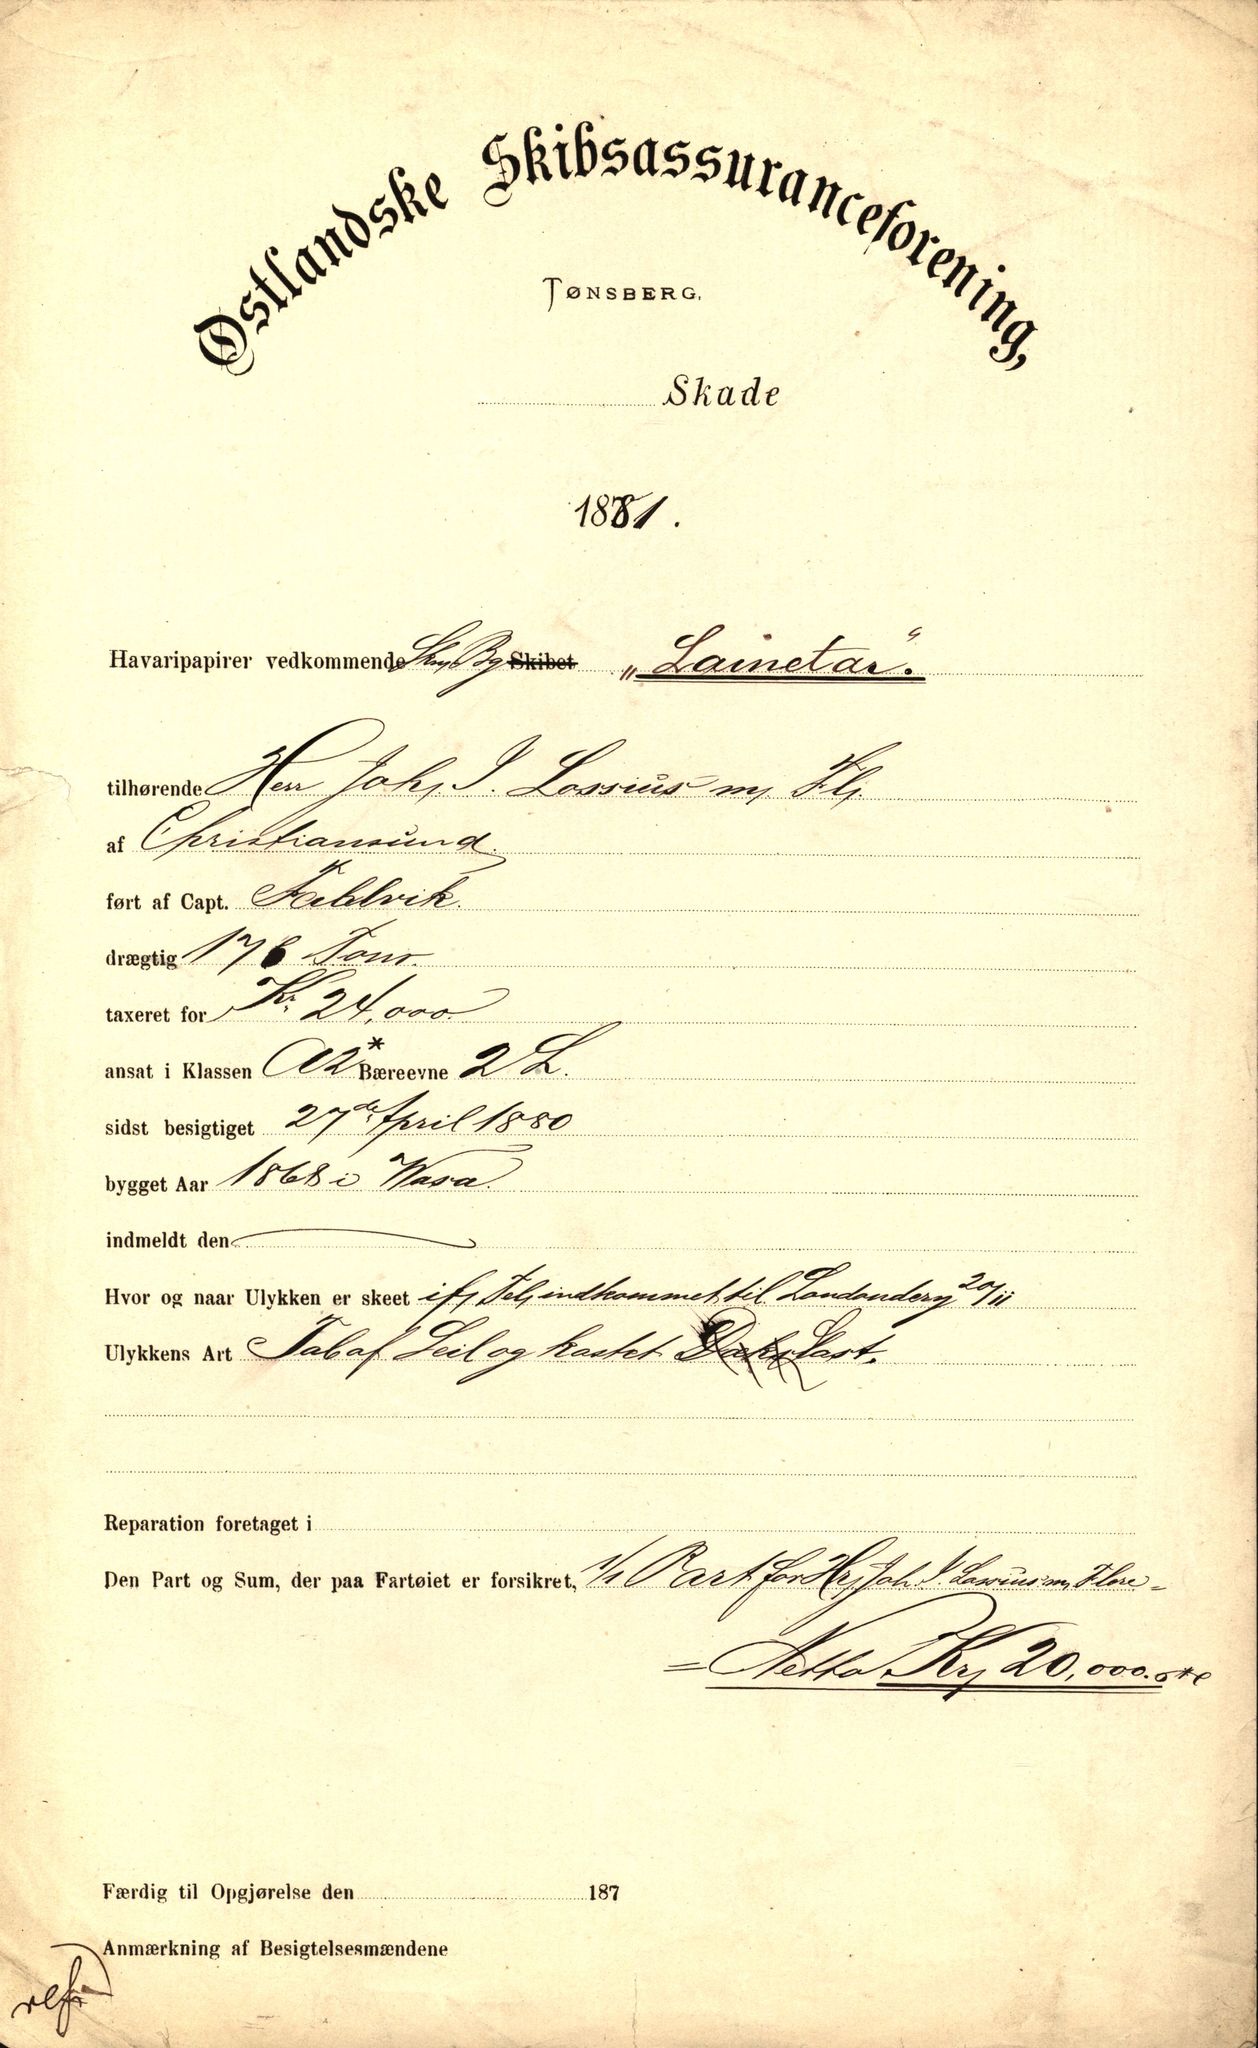 Østlandske Skibsassuranceforening,
TØNSBERG.
Skade
1881.
Havaripapirer vedkommende Bg Skibet „Lainetar“.
tilhørende Herr Joh. I. Lossius m. Fl.
af Christiansund
ført af Capt.
drægtig 176 Tons.
taxeret for Kr. 24,000.
ansat i Klassen A2* Bæreevne 2 L.
sidst besigtiget 27de April 1880
bygget Aar 1868 i Wasa.
indmeldt den
Hvor og naar Ulykken er skeet if. Tel. indkommet til Londondery 20/11
Ulykkens Art Tab af Seil og kastet Dæks Last.
Reparation foretaget i
Den Part og Sum, der paa Fartøiet er forsikret, 1/1 Part for Hr. Joh. I. Lossius m. Flere =
= Netto Kr. 20,000.
Færdig til Opgjørelse den 187
Anmærkning af Besigtelsesmændene